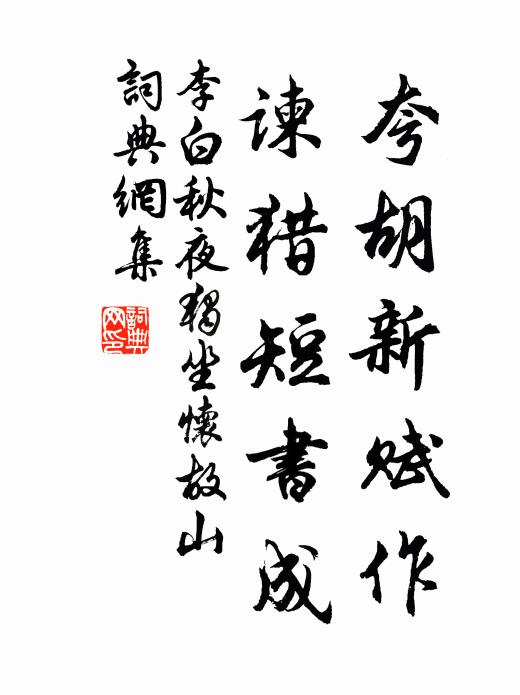 夸胡新赋作
谏猎短書成
李白秋夜獨坐懷故山
詞典網集
詞典网印